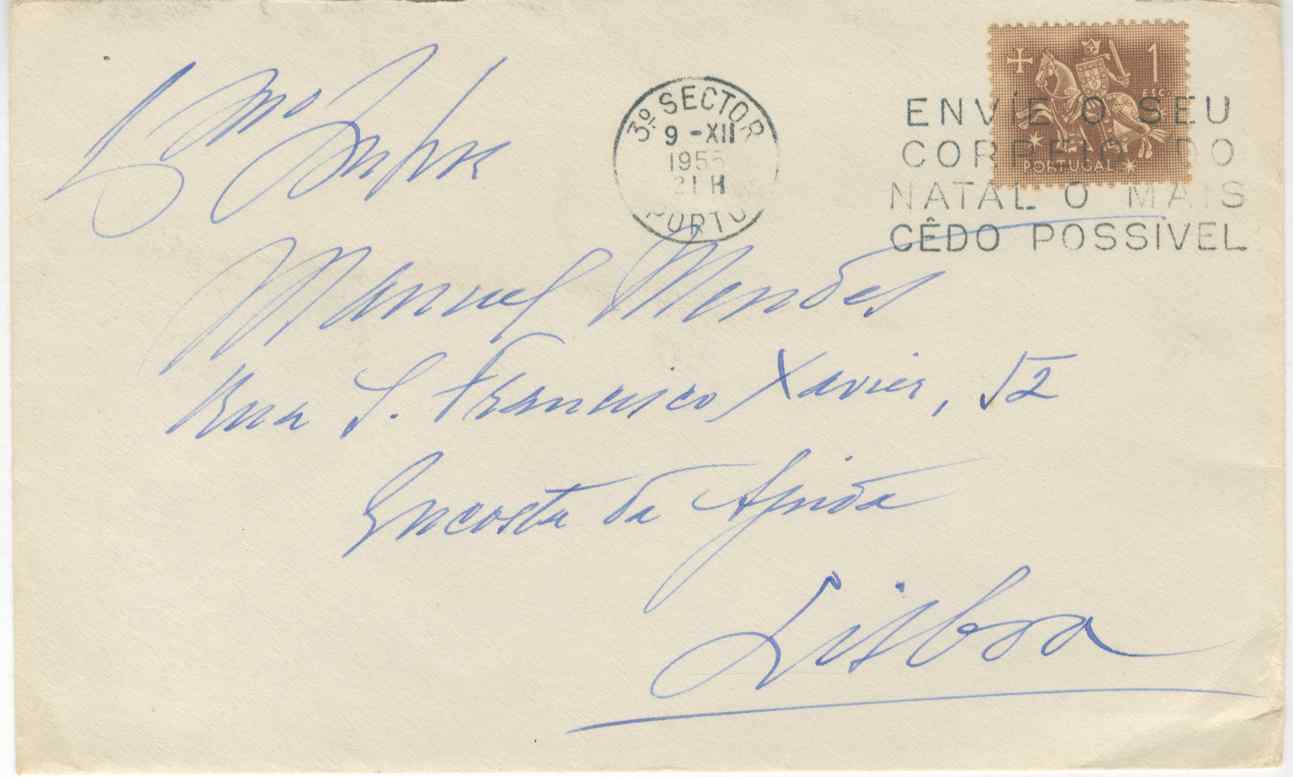 3º SECTOR
9 -XII
1955
21 H
PORTO
1
ESC.
PORTUGAL
ENVIE O SEU
CORREIO DO
NATAL O MAIS
CÊDO POSSÍVEL
Manuel Mendes
Rua S. Francisco Xavier, 52
Encosta da Ajuda
Lisboa